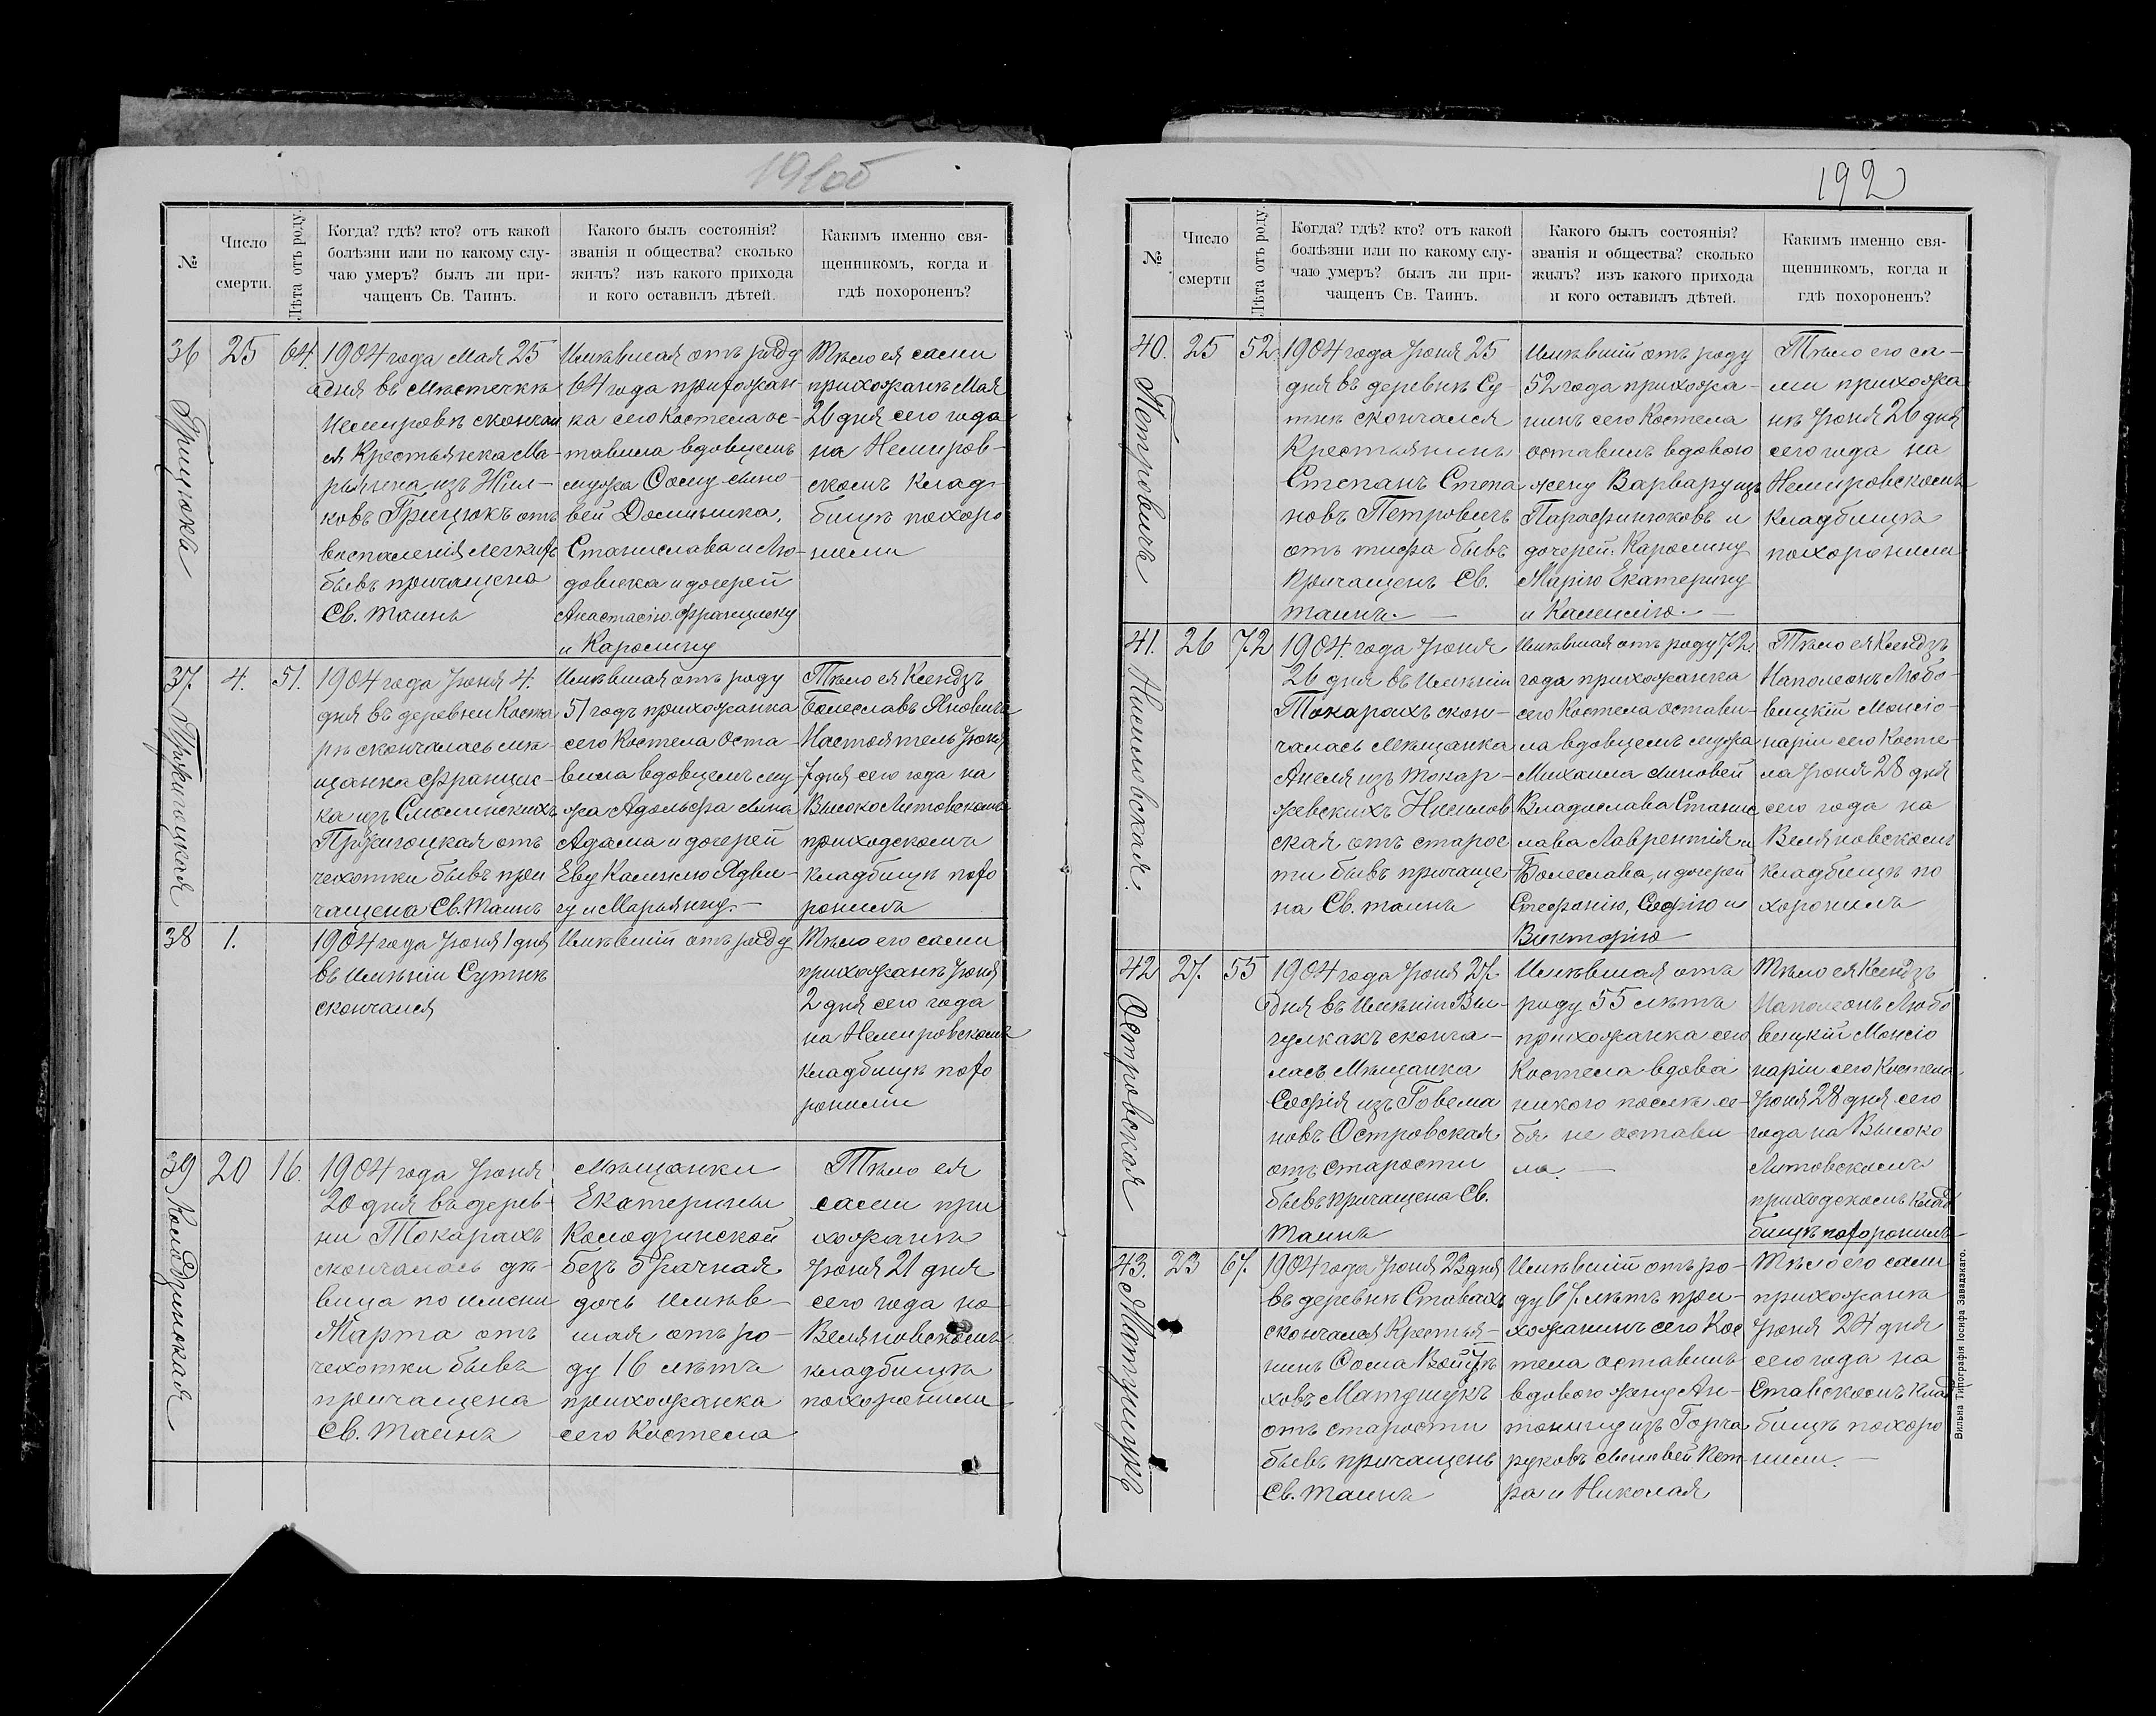 191об
№
Число
смерти.
Лѣта отъ роду.
Когда? гдѣ? кто? отъ какой
болѣзни или по какому слу-
чаю умеръ? былъ ли при-
чащенъ Св. Таинъ.
Какого былъ состоянія?
званія и общества? сколько
жилъ? изъ какого прихода
и кого оставилъ дѣтей.
Какимъ именно свя-
щенникомъ, когда и
гдѣ похороненъ?
36
Грицюка
25
64.
1904 года Мая 25
дня въ Мѣстечкѣ
Немировѣ сконча
ся Крестьянка Ма-
рьянна изъ
ковъ Грицюкъ отъ
воспаленія легкихъ
бывъ причащена
Св. таинъ
Имѣвшая отъ роду
64 года прихожан-
ка сего Костела ос-
тавила вдовцемъ
мужа Фому сыно-
вей Доминика,
Станислава и Лю-
довика и дочерей
Анастасію Францишку
и Каролину
Тѣло ея сами
прихожанѣ Мая
26 дня сего года
на Немиров-
скомъ клад-
бищѣ похоро
нили
37.
4.
51.
1904 года Іюня 4.
дня въ деревни Коста
рѣ скончалась мѣ-
щанка Францис-
ка изъ Смолинскихъ
отъ
чехотки бывъ при
чащена Св. таинъ
Имѣвшая отъ роду
51 годъ прихожанка
сего Костела Оста-
вила вдовцемъ му-
жа Адольфа сына
Адама и дочерей
Еву Камилю Ядви-
гу и Марьянну.-
Тѣло ея Ксендзъ
Болеславъ Яновичъ
Настоятель Іюня
7 дня сего года на
ВысокоЛитовскомъ
приходскомъ
кладбищѣ похо
ронилъ
38
1.
1904 года Іюня 1 дня
въ имѣніи Сутнѣ
скончался
Имѣвшій отъ роду
Тѣло его сами
прихожанѣ Іюня
2 дня сего года
на Немировскомъ
кладбищѣ похо
ронили
39
Колодзинская
20
16.
1904 года Іюня
20 дня въ дерев-
ни Токарахъ
скончалась дѣ-
вица по имени
Марта отъ
чехотки бывъ
причащена
Св. таинъ
Мѣщанки
Екатерины
Колодзинской
безъ брачная
дочь имѣв-
шая отъ ро-
ду 16 лѣтъ
прихожанка
сего Костела
Тѣло ея
сами при
хожанѣ
Іюня 21 дня
сего года на
Веляновскомъ
кладбищѣ
похоронили
192
№
Число
смерти
Лѣта отъ роду.
Когда? гдѣ? кто? отъ какой
болѣзни или по какому слу-
чаю умеръ? былъ ли при-
чащенъ Св. Таинъ.
Какого былъ состоянія?
званія и общества? сколько
жилъ? изъ какого прихода
и кого оставилъ дѣтей.
Какимъ именно свя-
щенникомъ, когда и
гдѣ похороненъ?
40.
Петровичъ
25
52.
1904 года Іюня 25
дня въ деревнѣ Су
тнѣ скончался
Крестьянинъ
Степанъ Степа
новъ Петровичъ
отъ тифа бывъ
Причащенъ Св.
таинъ.-
Имѣвшій отъ роду
52 года прихожа-
нинъ сего Костела
оставилъ вдовою
жену Варвару изъ
Парафинюковъ и
дочерей: Каролину
Марію Екатерину
и Камилію.-
Тѣло его са-
ми прихожа
нѣ Іюня 26 дня
сего года на
Немировскомъ
Кладбищѣ
похоронили
41.
26
72
1904. года Іюня
26 дня въ имѣніи
Токарахъ скон-
чалась мѣщанка
Анеля изъ Токар-
жевскихъ
ская отъ старос
ти бывъ причаще
на Св. таинъ
Имѣвшая отъ роду 72.
года прихожанка
сего Костела остави-
ла вдовцемъ мужа
Михаила сыновей
Владислава Станис
лава Лаврентія и
Болеслава, и дочерей
Стефанію, Софію и
Викторію
Тѣло ея Ксендзъ
Наполеонъ Любо-
вицкій Мансіо-
нарій сего Косте-
ла Іюня 28 дня
сего года на
Веляновскомъ
кладбищѣ по
хоронилъ
42
Островская
27.
55
1904 года Іюня 27.
дня въ имѣніи Вы-
чулкахъ сконча-
лась Мѣщанка
Софія изъ Говема
новъ Островская
отъ старости
бывъ причащена Св.
таинъ
Имѣвшая отъ
роду 55 лѣтъ
прихожанка сего
Костела вдова
никого послѣ се-
бя не остави
ла.-
Тѣло ея Ксендзъ
Наполеонъ Любо
вицкій Мансіо
нарій сего Костела
Іюня 28 дня сего
года на Высоко
Литовскомъ
приходскомъ клад
бищѣ похоронилъ-
43.
Матушукъ
23
67.
1904 года Іюня 23 дня
въ деревнѣ Ставахъ
скончался Крестья-
нинъ Фома
ховъ Матушукъ
отъ старости
бывъ причащенъ
Св. таинъ
Имѣвшій отъ ро-
ду 67. лѣтъ при-
хожанинъ сего Кос
тела оставилъ
вдовою жену Ан-
тонину изъ Горча
руковъ сыновей Пет-
ра и Николая
Тѣло его сами
прихожанѣ
Іюня 24 дня
сего года на
Ставскомъ клад
бищѣ похоро
нили.-
Вильна Типографія Іосифа Завадзкаго.